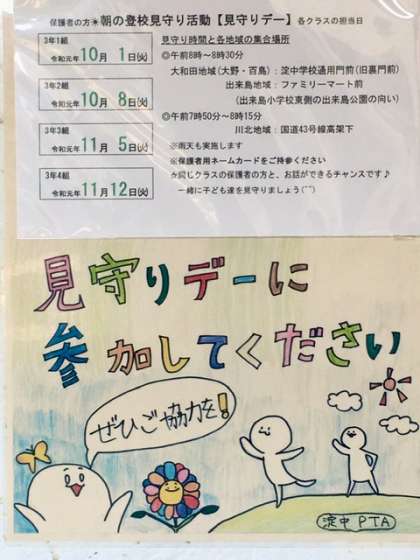 保護者の方☀朝の登校見守り活動【見守りデー】各クラスの担当日
3年1組
令和元年 10月 1日(火)
3年2組
令和元年 10月 8日(火)
3年3組
令和元年 11月 5日(火)
3年4組
令和元年 11月12日(火)
見守り時間と各地域の集合場所
◎午前8時～8時30分
大和田地域(大野・百島):淀中学校通用門前(旧裏門前)
出来島地域:ファミリーマート前
(出来島小学校東側の出来島公園の向い)
◎午前7時50分～8時15分
川北地域:国道43号線高架下
※雨天も実施します
※保護者用ネームカードをご持参ください
☆同じクラスの保護者の方と、お話ができるチャンスです♪
一緒に子ども達を見守りましょう(^^)
見守りデーに
参加してください
ぜひご協力を!
淀中 PTA